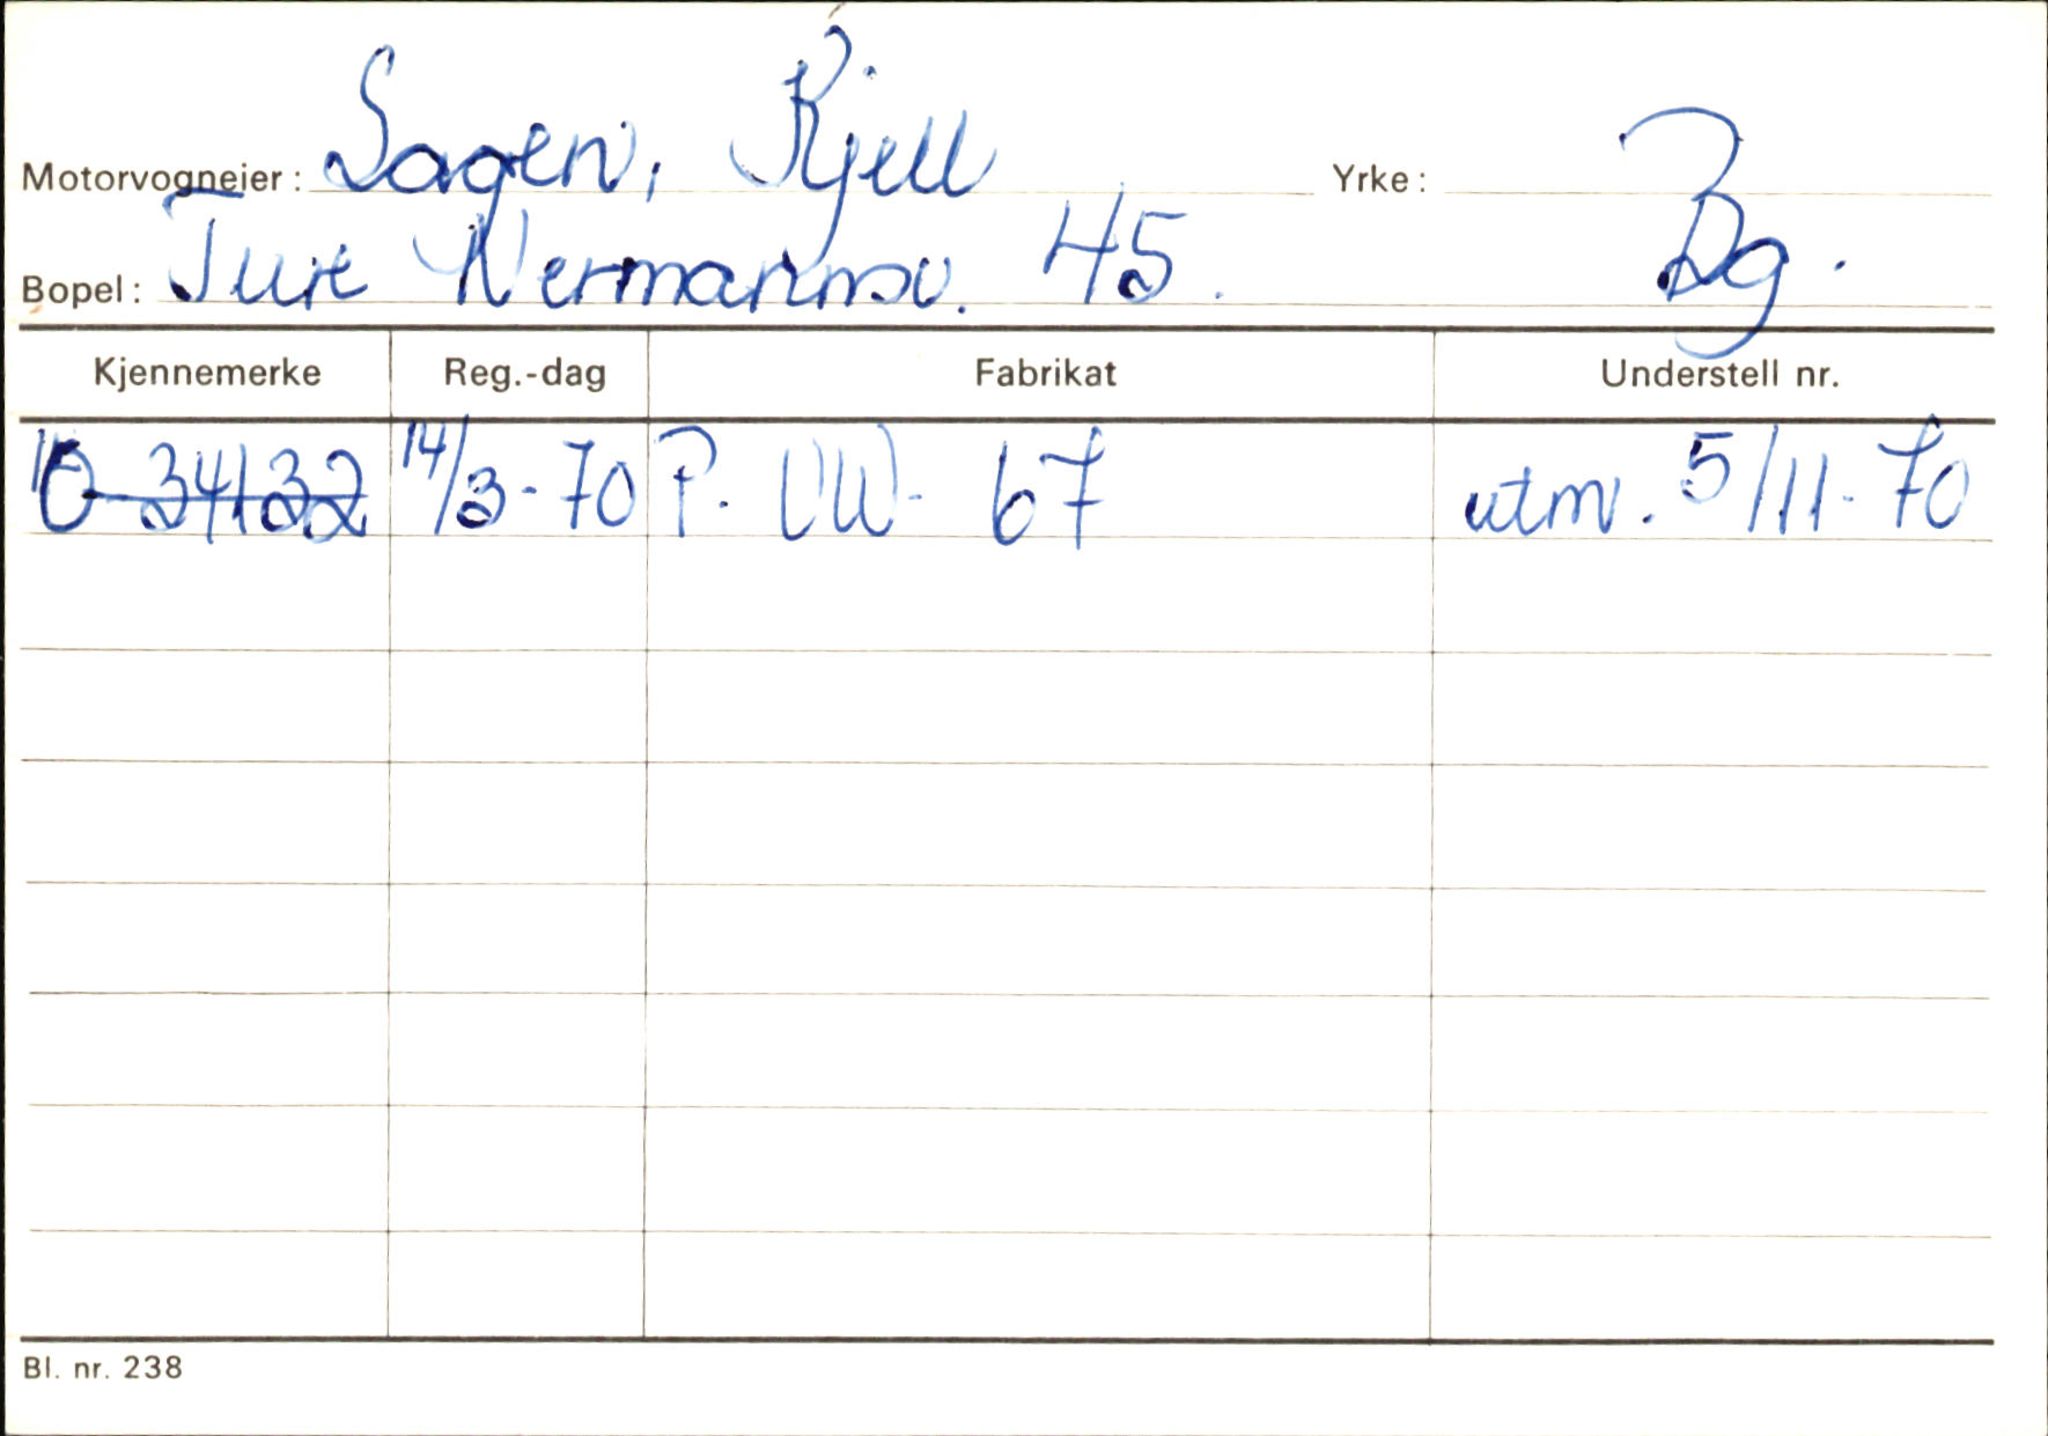 Motorvogneier: Sagen, Kjell Yrke:
Bopel: Ture Nermannsv. 45. Bg.
Kjennemerke Reg.-dag Fabrikat Understell nr.
O-34132 14/3-70 P. VW- 67 utm. 5/11-70
Bl. nr. 238